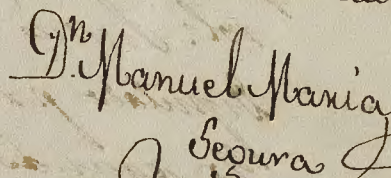 Dn. Manuel Maria
Segura